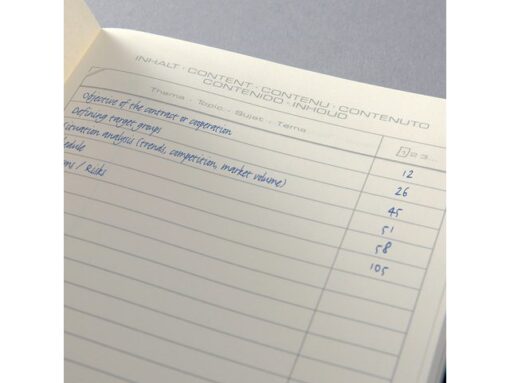 INHALT · CONTENT · CONTENU · CONTENUTO
CONTENIDO · INHOUD
Thema · Topic · Sujet · Tema 1 2 3...
Objective of the contract or cooperation 12
Defining target groups 26
Situation analysis (trends, competition, market volume) 45
edule 51
/ Risks 58
105